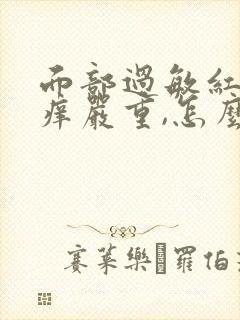 而部過敏紅
痒嚴重,怎麼
賽萊樂�羅伯